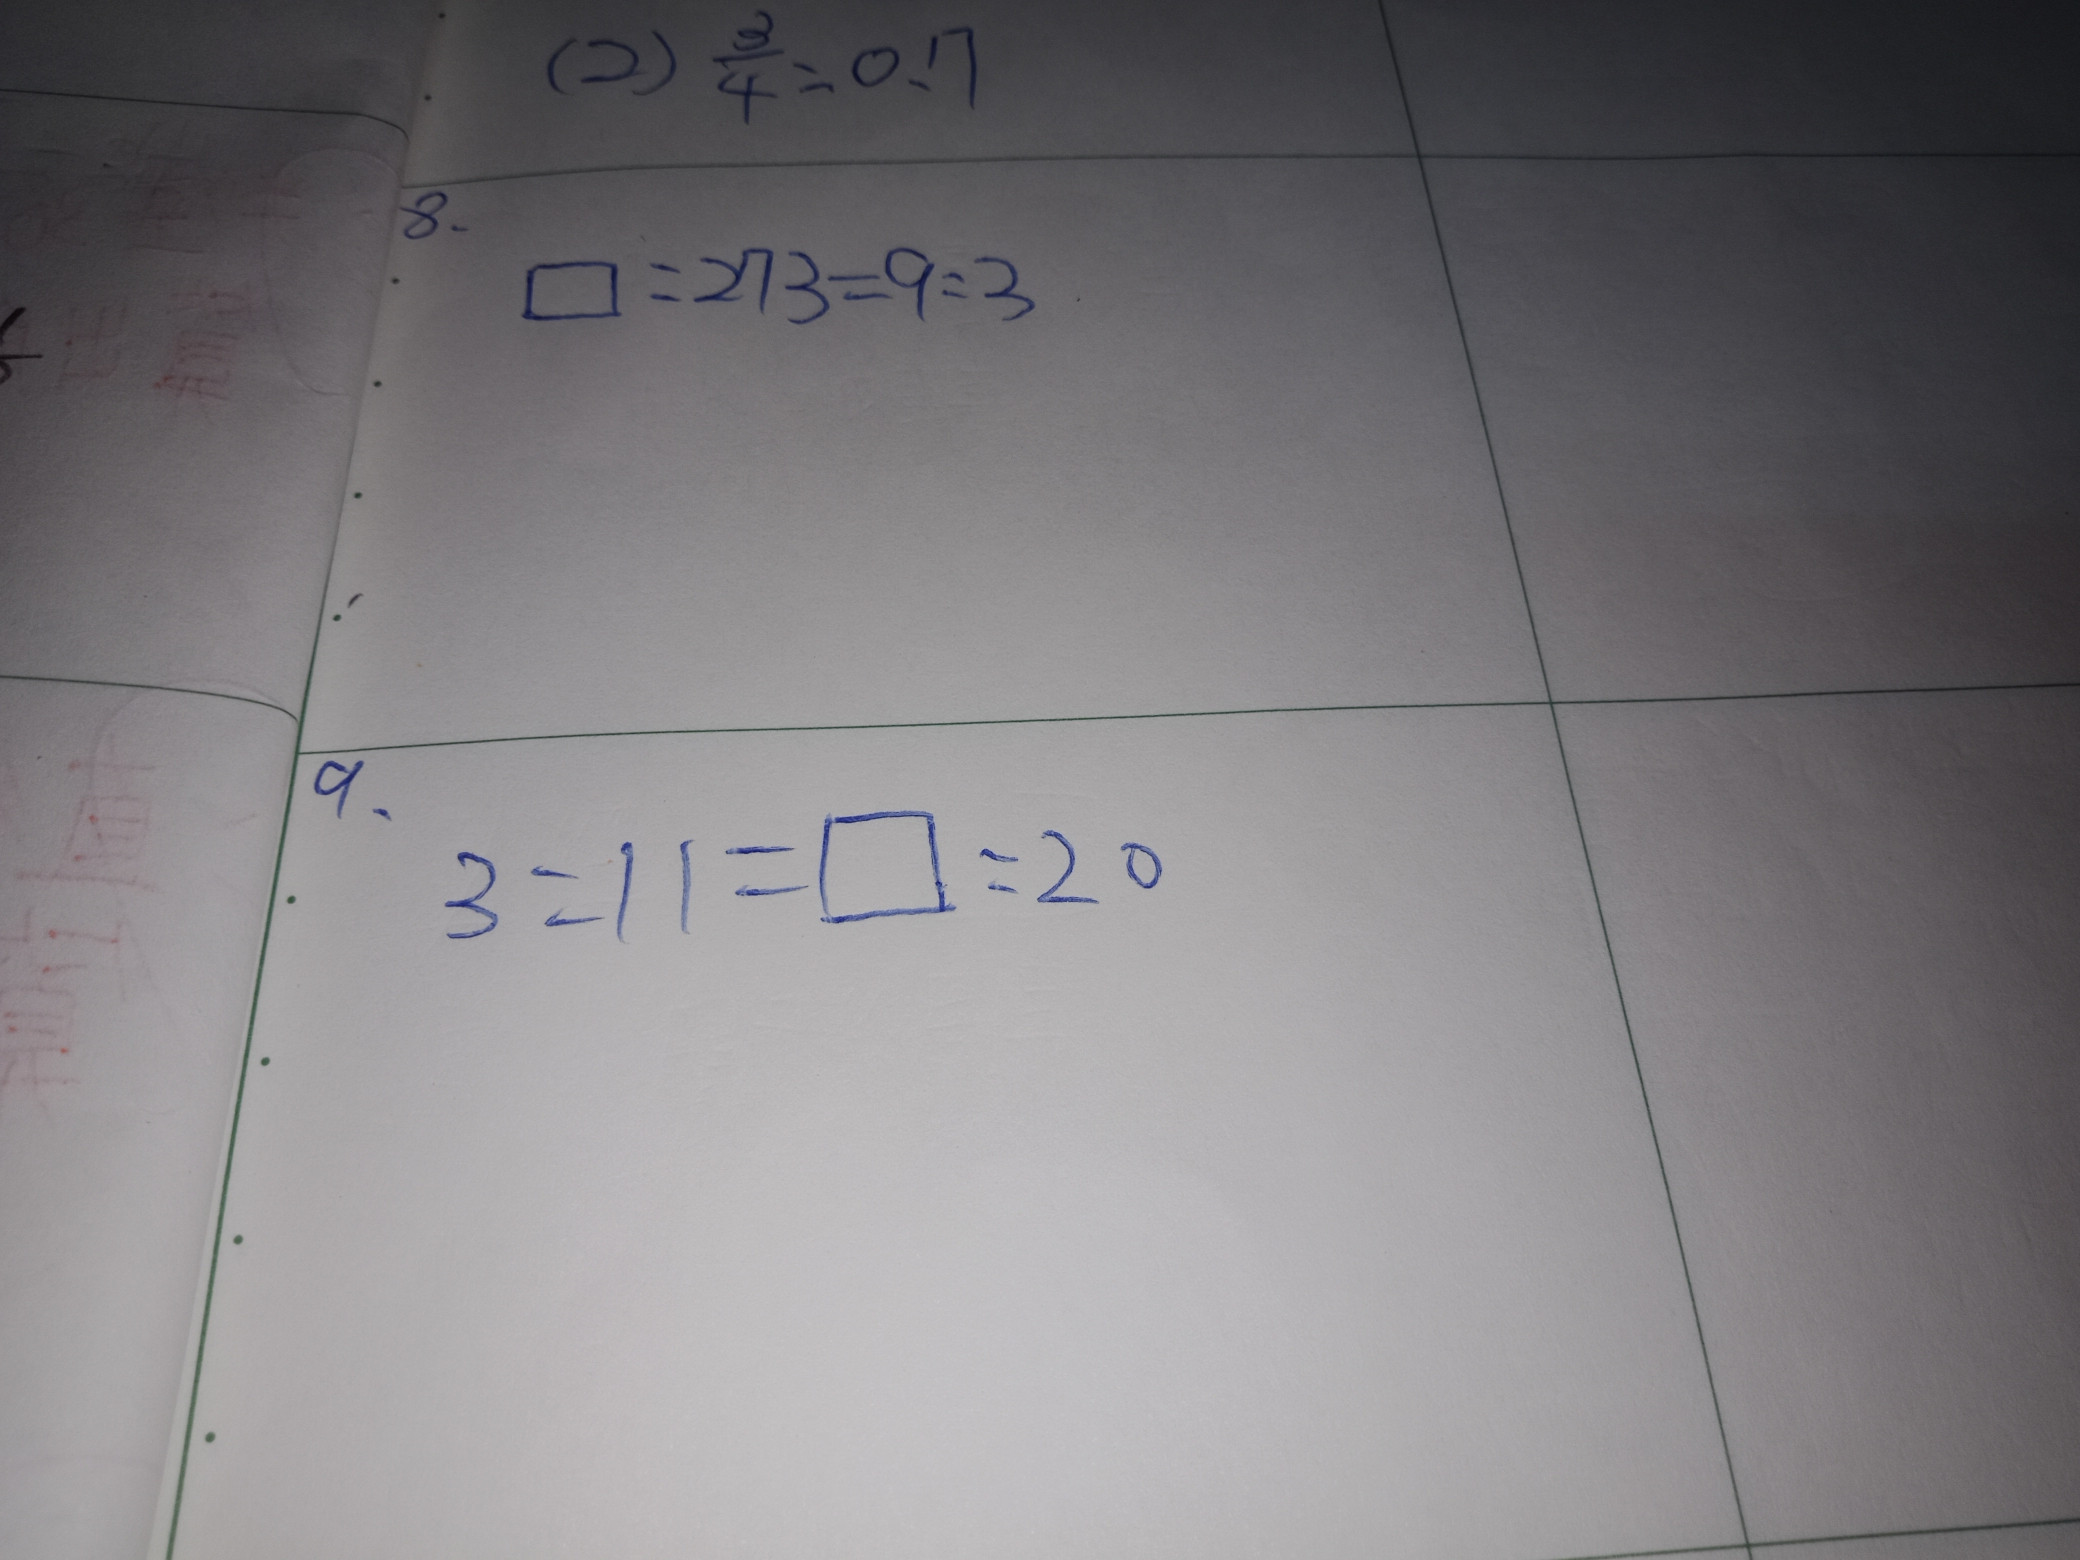 (2) 3/4 = 0.7
8.
□ = 273 = 9 = 3
9.
3 = 11 = □ = 20